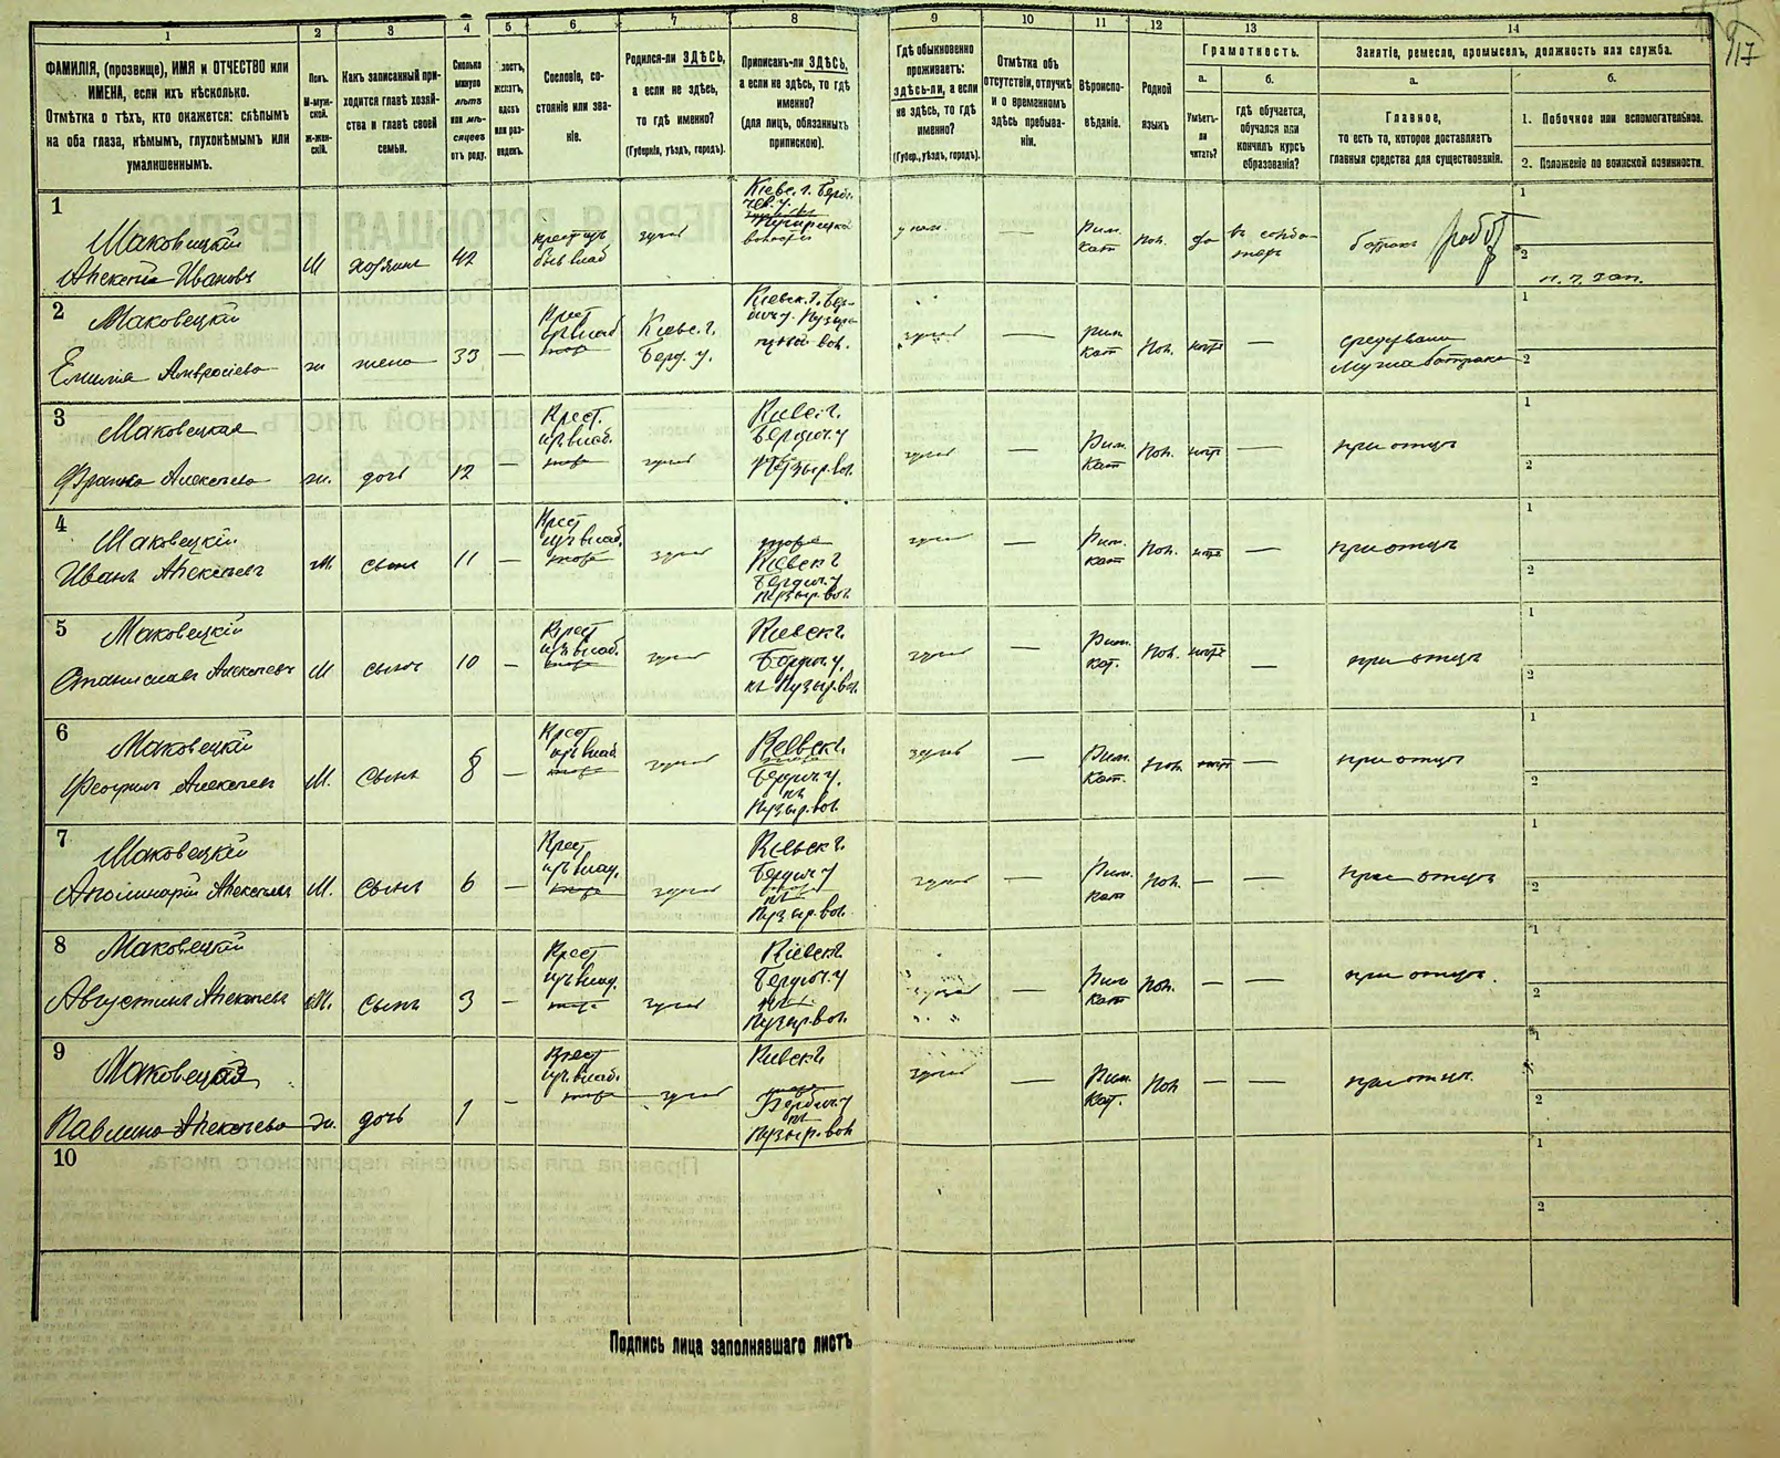 1 2 3 4 5 6 7 8 9 10 11 12 13 14
ФАМИЛІЯ, (прозвище), ИМЯ и ОТЧЕСТВО или
ИМЕНА, если ихъ нѣсколько.
Отмѣтка о тѣхъ, кто окажется: слѣпымъ
на оба глаза, нѣмымъ, глухонѣмымъ или
умалишеннымъ.
Полъ.
М-муж-
ской.
ж-жен-
скій.
Какъ записанный при-
ходится главѣ хозяй-
ства и главѣ своей
семьи.
Сколько
минуло
лѣтъ
или мѣ-
сяцевъ
отъ роду.
лостъ,
женатъ,
вдовъ
или раз-
веденъ.
Сословіе, со-
стояніе или зва-
ніе.
Родился-ли ЗДѢСЬ,
а если не здѣсь,
то гдѣ именно?
(Губернія, уѣздъ, городъ).
Приписанъ-ли ЗДѢСЬ,
а если не здѣсь, то гдѣ
именно?
(для лицъ, обязанныхъ
припискою).
Гдѣ обыкновенно
проживаетъ:
здѣсь-ли, а если
не здѣсь, то гдѣ
именно?
(Губер., уѣздъ, городъ).
Отмѣтка объ
отсутствіи, отлучкѣ
и о временномъ
здѣсь пребыва-
ніи.
Вѣроиспо-
вѣданіе.
Родной
языкъ
Грамотность.
а.
Умѣетъ-
ли
читать?
б.
Гдѣ обучается,
обучался или
кончилъ курсъ
образованія?
Занятіе, ремесло, промыселъ, должность или служба.
а.
Главное,
то есть то, которое доставляетъ
главныя средства для существованія.
б.
1. Побочное или вспомогательное.
2. Положеніе по воинской повинности.
117
1
Маковецкій
Алексѣй Ивановъ
М
хозяинъ
42
крест изъ
быв влад
здѣсь
Кіевс. г. Берди-
чев. у.
волости
Рим.
кат
Пол.
да
батракъ
1
2
2
Маковецкій
Емилія Амвросіева
ж
жена
33
—
Крест
изъ влад
Кіевс. г.
Берд. у.
Кіевск. г. Бер-
дич у. Пузыр-
вол.
здѣсь
—
Рим
кат
Пол.
нѣтъ
—
мужа батрака
1
2
3
Маковецкая
Франка Алексѣева
ж.
дочь
12
—
Крест.
изъ влад.
здѣсь
Кіевс. г.
Бердич. у
Пузыр. вол.
здѣсь
—
Рим.
кат
Пол.
нѣтъ
—
при отцѣ
1
2
4
Маковецкій
Иванъ Алексѣевъ
М.
сынъ
11
—
Крест
изъ влад.
здѣсь
Кіевск г
Бердич. у
Пузыр. вол.
здѣсь
—
Рим.
кат
Пол.
нѣтъ
—
при отцѣ
1
2
5
Маковецкій
Станиславъ Алексѣевъ
М
сынъ
10
—
Крест
изъ влад.
здѣсь
Кіевск г.
Бердич. у.
Пузыр. вол.
здѣсь
—
Рим.
кат.
Пол.
нѣтъ
—
при отцѣ
1
2
6
Маковецкій
Феофилъ Алексѣевъ
М.
сынъ
8
—
Крест
изъ влад
здѣсь
Кіевск г.
Бердич. у.
Пузыр. вол.
здѣсь
—
Рим.
Кат.
Пол.
нѣтъ
—
при отцѣ
1
2
7
Маковецкій
Аполинарій Алексѣевъ
М.
сынъ
6
—
Крест
изъ влад.
здѣсь
Кіевск г.
Бердич у
Пузыр. вол.
здѣсь
—
Рим.
кат
Пол.
—
—
при отцѣ
1
2
8
Маковецкій
Августинъ Алексѣевъ
М.
сынъ
3
—
Крест
изъ влад.
здѣсь
Кіевск г
Бердич. у
Пузыр. вол.
здѣсь
—
Рим
кат
Пол.
—
—
при отцѣ.
1
2
9
Маковецкая
Павлина Алексѣева
ж.
дочь
1
—
Крест
изъ влад.
здѣсь
Кіевск г
Бердич. у
Пузыр. вол
здѣсь
—
Рим.
кат.
Пол
—
—
при отцѣ.
1
2
10
1
2
Подпись лица заполнявшаго листъ